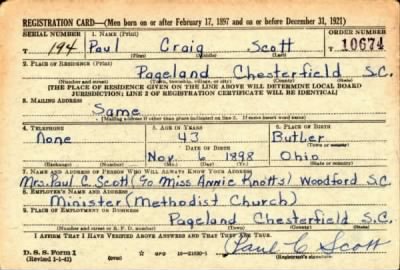 REGISTRATION CARD—(Men born on or after February 17, 1897 and on or before December 31, 1921)
SERIAL NUMBER 1. NAME (Print) ORDER NUMBER
T 194 Paul Craig Scott T 10674
(First) (Middle) (Last)
2. PLACE OF RESIDENCE (Print)
Pageland Chesterfield S.C.
(Number and street) (Town, township, village, or city) (County) (State)
[THE PLACE OF RESIDENCE GIVEN ON THE LINE ABOVE WILL DETERMINE LOCAL BOARD
JURISDICTION; LINE 2 OF REGISTRATION CERTIFICATE WILL BE IDENTICAL]
3. MAILING ADDRESS
Same
[Mailing address if other than place indicated on line 2. If same insert word same]
4. TELEPHONE 5. AGE IN YEARS 6. PLACE OF BIRTH
None 43 Butler
DATE OF BIRTH (Town or county)
Nov. 6 1898 Ohio
(Exchange) (Number) (Mo.) (Day) (Yr.) (State or country)
7. NAME AND ADDRESS OF PERSON WHO WILL ALWAYS KNOW YOUR ADDRESS
Mrs. Paul C. Scott (℅ Miss Annie Knotts) Woodford S.C.
8. EMPLOYER'S NAME AND ADDRESS
Minister (Methodist Church)
9. PLACE OF EMPLOYMENT OR BUSINESS
Pageland Chesterfield S.C.
(Number and street or R. F. D. number) (Town) (County) (State)
I AFFIRM THAT I HAVE VERIFIED ABOVE ANSWERS AND THAT THEY ARE TRUE.
D. S. S. Form 1
(Revised 1-1-42) (over) GPO 16—21630-1 Paul C Scott
(Registrant's signature)